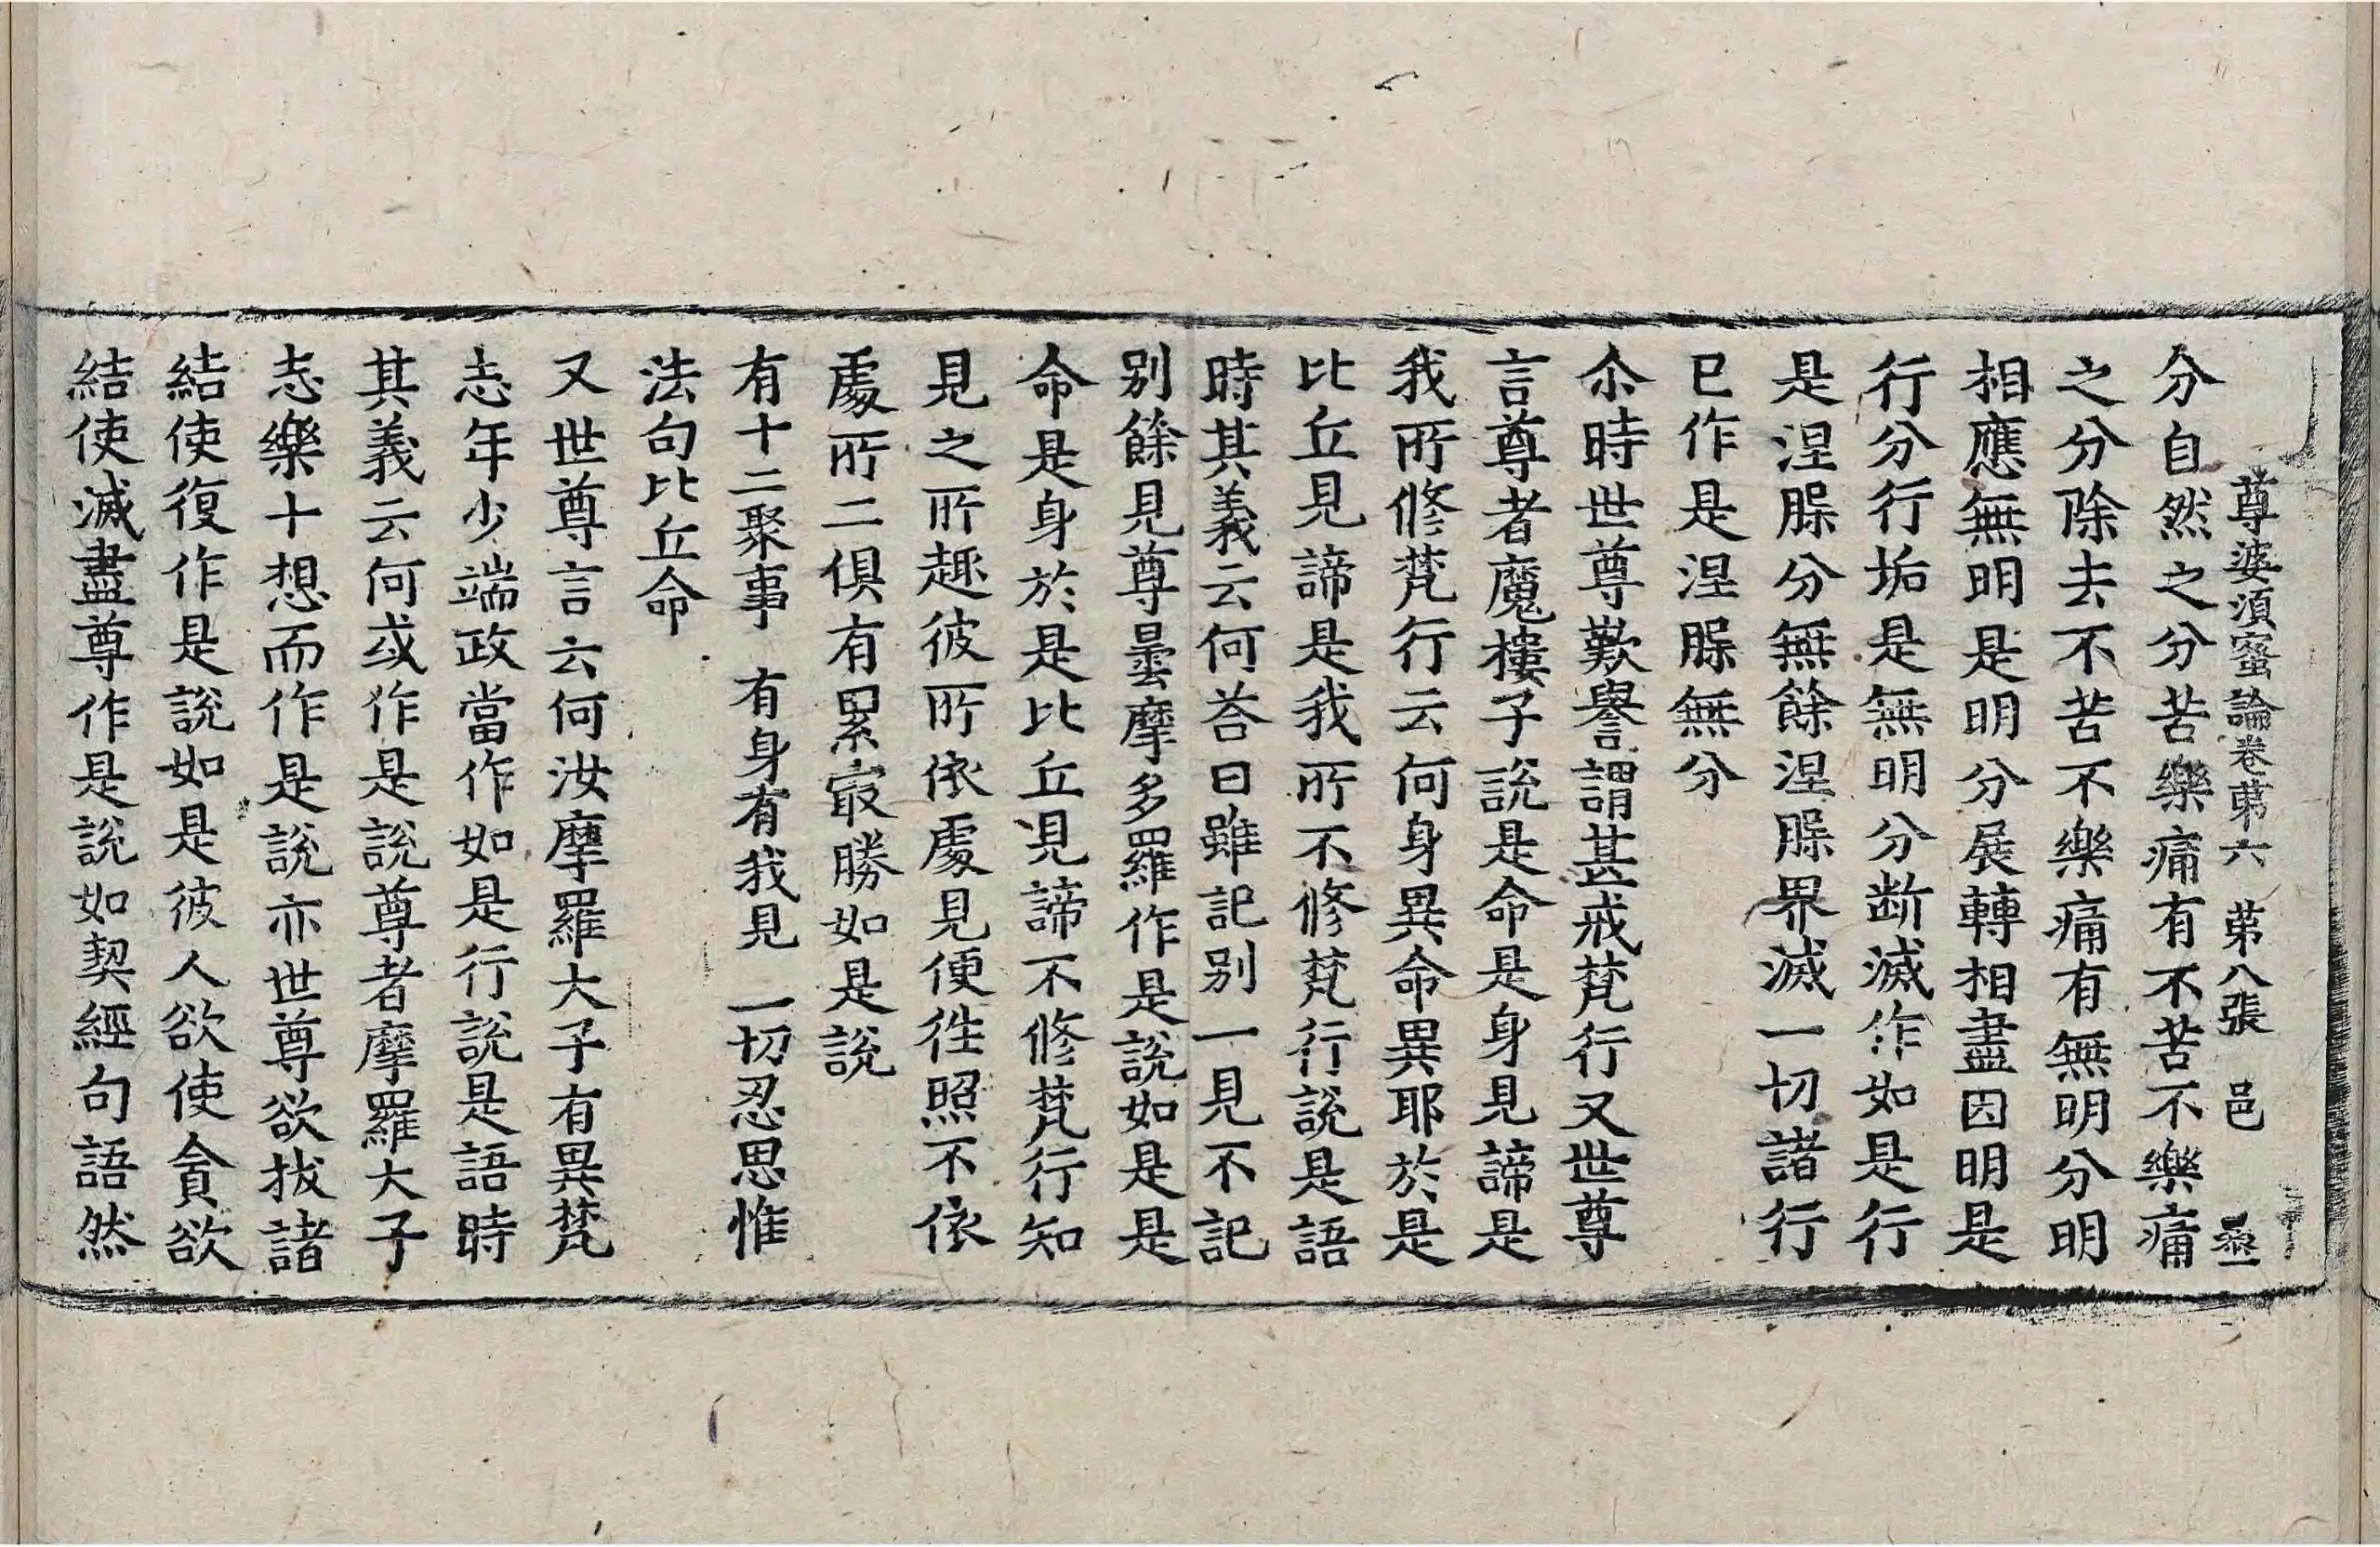 尊婆須蜜論卷苐六　苐八張　邑
分自然之分苦樂痛有不苦不樂痛
之分除去不苦不樂痛有無明分明
相應無明是明分展轉相盡因明是
行分行垢是無明分断滅作如是行
是涅腺分無餘涅腺界滅一切諸行
已作是涅腺無分
尒時世尊歎譽謂甚戒梵行又世尊
言尊者魔樓子說是命是身見諦是
我所修梵行云何身異命異耶於是
比丘見諦是我所不修梵行說是語
時其義云何荅曰雖記别一見不記
别餘見尊曇摩多羅作是說如是是
命是身於是比丘見諦不修梵行知
見之所趣彼所依處見便徃照不依
處所二俱有累㝡勝如是說
有十二聚事　有身有我見　一切忍思惟
法句比丘命
又世尊言云何汝摩羅大子有異梵
志年少端政當作如是行說是語時
其義云何或作是說尊者摩羅大子
志樂十想而作是說亦世尊欲拔諸
結使復作是說如是彼人欲使貪欲
結使滅盡尊作是說如契經句語然